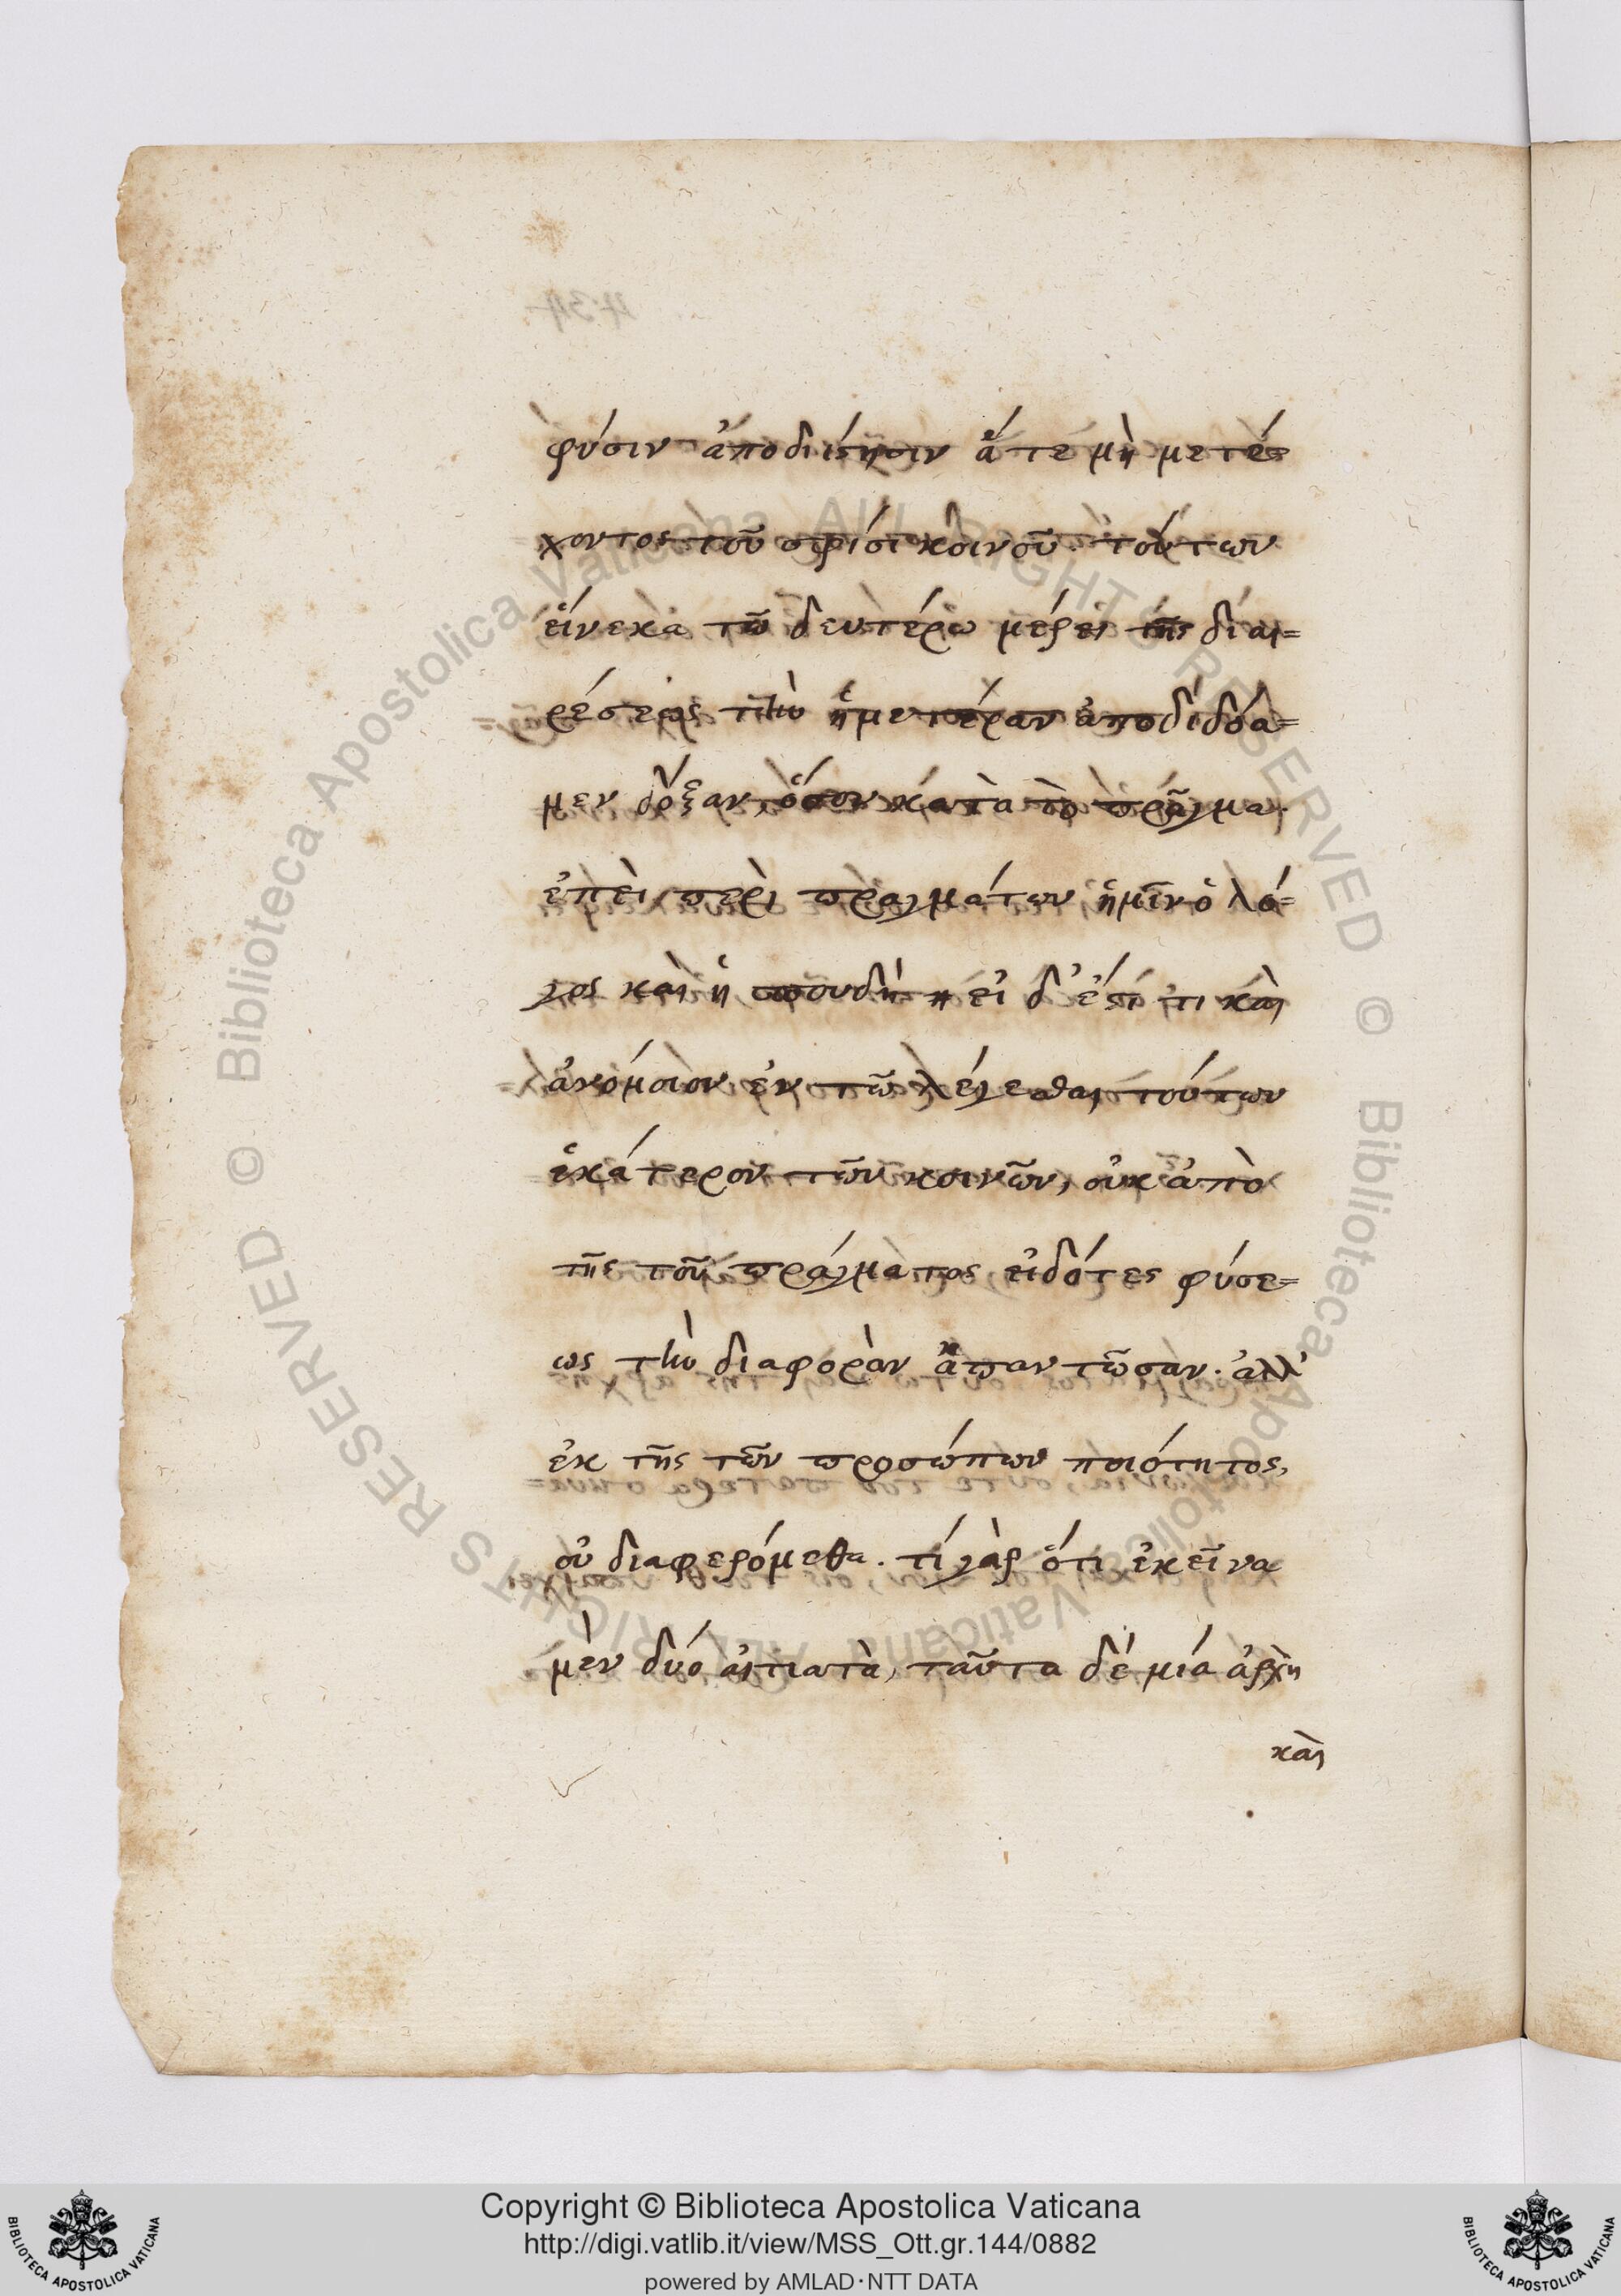 φύσιν ἀποδιίστησιν ἅτε μὴ μετέ=
χοντος τοῦ σφίσι κοινοῦ. τούτων
εἵνεκα τῶ δευτέρω μέρει τῆς διαι=
ρέσεως τὴν ἡμετέραν ἀποδιδόα=
μεν δόξαν, ὅσον κατὰ τὸ πρᾶγμα.
ἐπεὶ περὶ πραγμάτων ἡμῖν ὁ λό=
γος καὶ ἡ σπουδή εἰ δ' ἔστι τι καὶ
ἀνόμοιον ἐν τῶ λέγεσθαι τούτων
ἑκάτερον τῶν κοινῶν, οὐκ ἀπὸ
τῆς τοῦ πράγματος εἰδότες φύσε=
ως τὴν διαφορὰν ἀπαντῶσαν. ἀλλ'
ἐκ τῆς τῶν προσώπων ποιότητος,
οὐ διαφερόμεθα. τί γὰρ ὅτι ἐκεῖνα
μὲν δύο αἰτιατὰ, ταῦτα δέ μία ἀρχὴ
καὶ
© Biblioteca Apostolica Vaticana ALL RIGHTS RESERVED
© Biblioteca Apostolica Vaticana ALL RIGHTS RESERVED
Copyright © Biblioteca Apostolica Vaticana
http://digi.vatlib.it/view/MSS_Ott.gr.144/0882
powered by AMLAD·NTT DATA
BIBLIOTECA APOSTOLICA VATICANA
BIBLIOTECA APOSTOLICA VATICANA